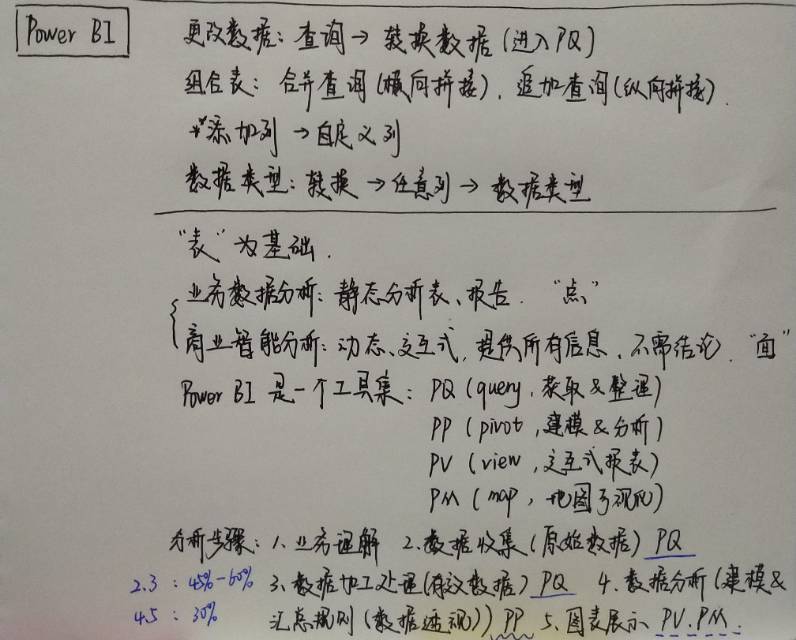 Power BI
更改数据: 查询→ 转换数据 (进入PQ)
组合表: 合并查询(横向拼接), 追加查询(纵向拼接).
*添加列→自定义列
数据类型: 转换→任意列→数据类型
"表"为基础.
业务数据分析: 静态分析表、报告. "点"
商业智能分析: 动态、交互式, 提供所有信息, 不需结论. "面"
Power BI 是一个工具集: PQ (query, 获取&整理)
PP (pivot, 建模&分析)
PV (view, 交互式报表)
PM (map, 地图可视化)
分析步骤: 1. 业务理解 2. 数据收集 (原始数据) PQ
2.3: 45%-60% 3. 数据加工处理(有效数据) PQ 4. 数据分析 (建模&
4.5: 30% 汇总规则 (数据透视)) PP 5. 图表展示 PV. PM.